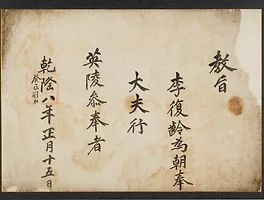 教旨
李復齡為朝奉
大夫行
英陵叅奉者
乾隆八年正月十五日